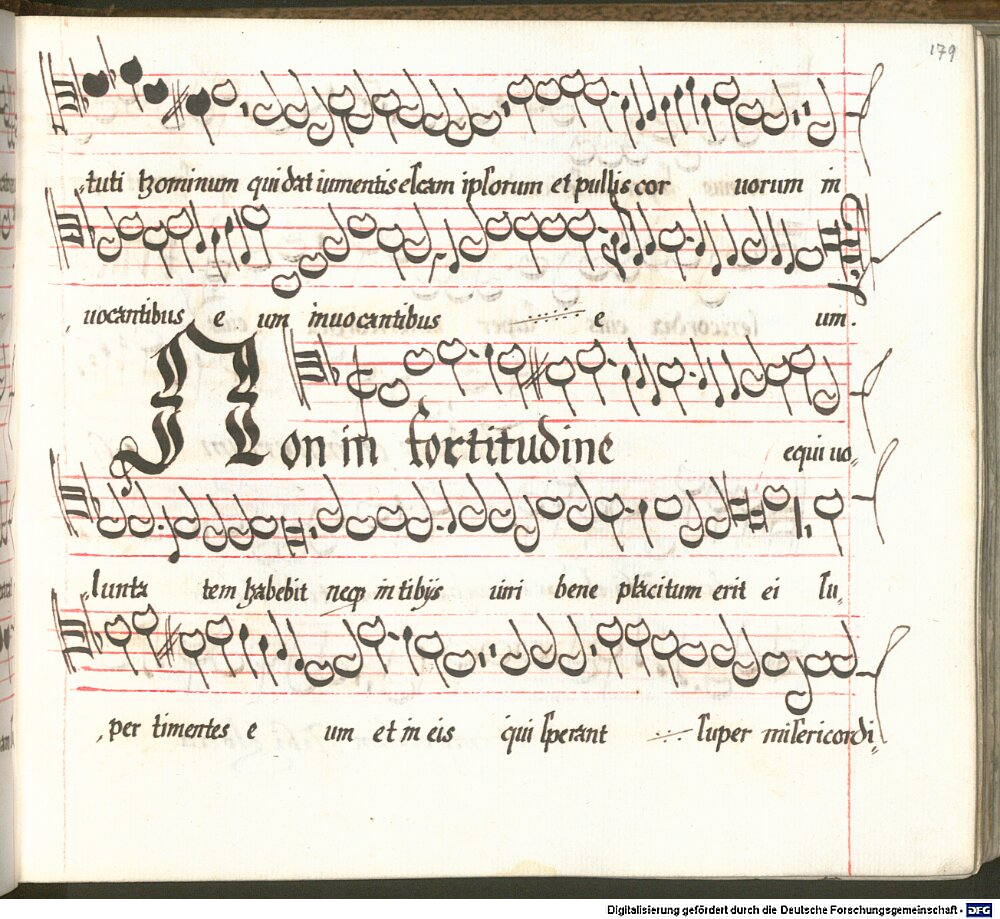 179
tuti hominum qui dat iumentis escam ipsorum et pullis cor uorum in
uocantibus e um inuocantibus e um.
Non in fortitudine equi uo
lunta tem habebit neqz in tibijs uiri bene placitum erit ei su
per timentes e um et in eis qui sperant super misericordi
Digitalisierung gefördert durch die Deutsche Forschungsgemeinschaft - DFG